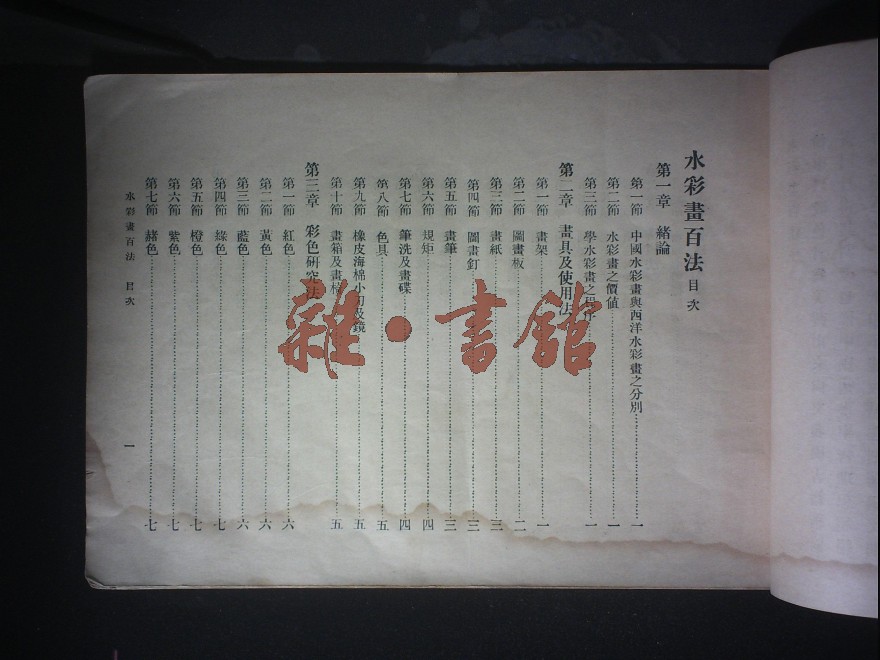 水彩畫百法 目次
第一章 緒論
第一節 中國水彩畫與西洋水彩畫之分別 一
第二節 水彩畫之價值 一
第三節 學水彩畫之 一
第二章 畫具及使用法
第一節 畫架 一
第二節 圖畫板 二
第三節 畫紙 三
第四節 圖畫釘 三
第五節 畫筆 三
第六節 規矩 四
第七節 筆洗及畫碟 四
第八節 色具 五
第九節 橡皮海棉小刀及鏡 五
第十節 畫箱及畫 五
第三章 彩色研究法
第一節 紅色 六
第二節 黃色 六
第三節 藍色 六
第四節 綠色 七
第五節 橙色 七
第六節 紫色 七
第七節 赭色 七
水彩畫百法 目次 一
雜·書館